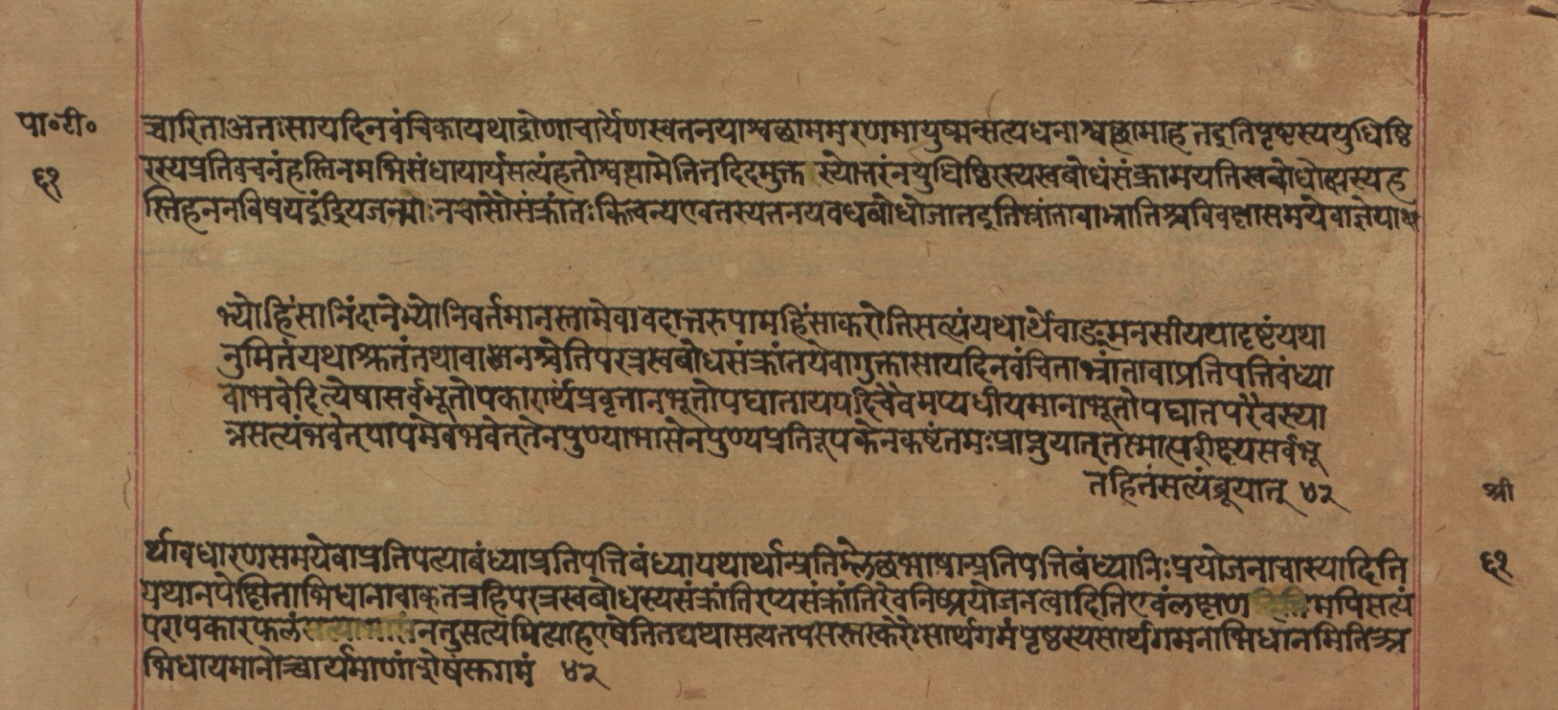 पा॰टी॰
६१
च्चारिताअतःसायदिनवंचिकायथाद्रोणाचार्येणस्वतनयाश्वत्थाममरणमायुष्मन्सत्यधनाश्वत्थामाहतइतिपृष्टस्ययुधिष्ठि
रस्यप्रतिवचनंहस्तिनमभिसंधायार्यसत्यंहतोश्वत्थामेतितदिदमुक्त स्योत्तरंनयुधिष्ठिरस्यस्वबोधंसंक्रामयतिस्वबोधोह्यस्यह
स्तिहननविषयइंद्रियजन्माःनचासौसंक्रांतःकित्वन्यएवतस्यतनयवधबोधोजातइतिभ्रांतावाभ्रातिश्चविवक्षासमयेवाज्ञेया
भ्योहिंसानिंदानेभ्योनिवर्तमानस्तामेवावदातरुपामहिंसाकरोतिसत्यंयथार्थेवाङ्मनसीयथादृष्टंयथा
नुमितंयथाश्रुतंतथावाङ्मनश्चेतिपरत्रस्वबोधसंक्रांतयेवागुक्तासायदिनवंचिताभ्रांतावाप्रतिपत्तिवंध्या
वाभवेदित्येषासर्वभूतोपकारार्थंप्रवृत्तानभूतोपघातायपदिचैवमप्यधीयमानाभूतोपघातपरैवस्या
न्नसत्यंभवेत्पापमेवभवेत्तेनपुण्याभासेनपुण्यप्रतिरूपकेनकष्टंतमःप्राप्नुयात्तस्मात्परीक्ष्यसर्वभू
तहितंसत्यंब्रूयात् ४२
श्री
र्थावधारणसमयेवाप्रतिपत्याबंध्याप्रतिपत्तिबंध्यायथार्थान्प्रतिम्लेछभाषाप्रतिपत्तिबंध्यानिःप्रयोजनावास्यादिति
६१
यथानपेक्षिताभिधानावाक्तत्रहिपरत्रस्वबोधस्यसंक्रांतिरप्यसंक्रांतिरेवनिष्प्रयोजनत्वादितिएवंलक्षण मपिसत्यं
परापकारफलंसत्याभासंनतुसत्यमित्याहएषेतितद्यथासत्यतपसस्तस्करैःसार्थगमंपृष्ठस्यसार्थगमनाभिधानमितिअ
भिधायमानोच्चार्यमाणा ४२